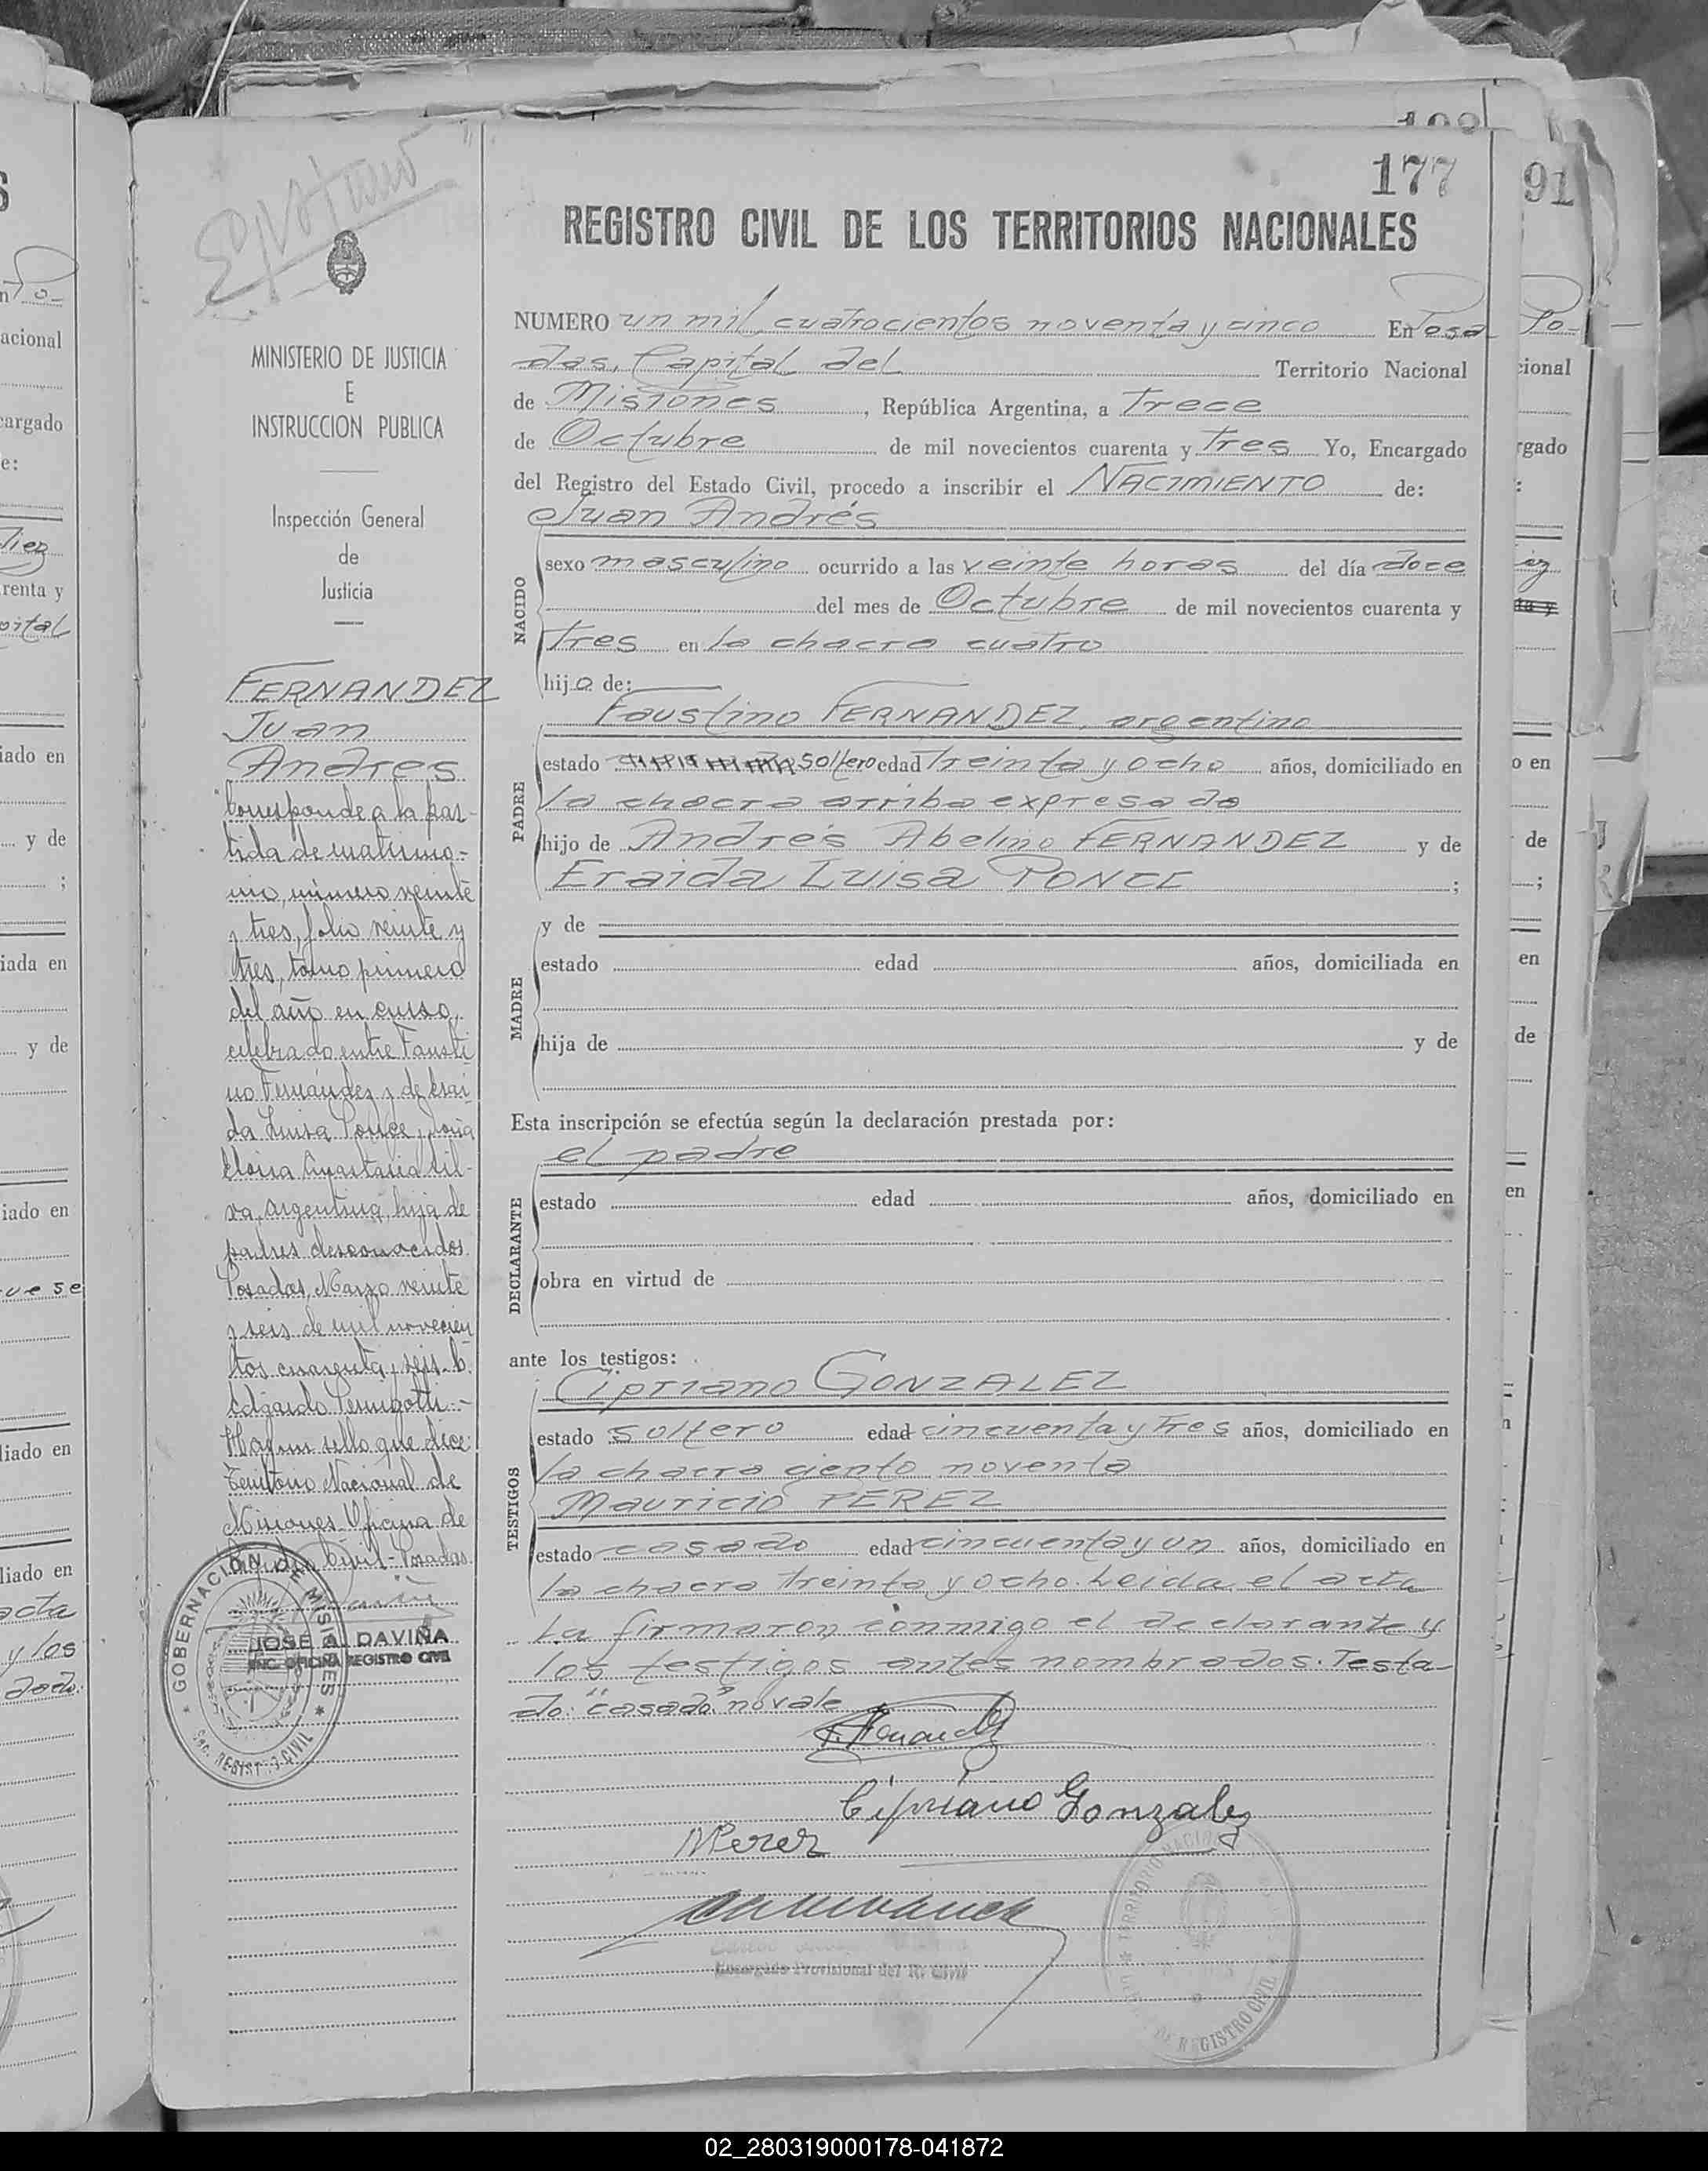 177
91
REGISTRO CIVIL DE LOS TERRITORIOS NACIONALES
NUMERO un mil, cuatrocientos noventa y cinco En Posa
das, Capital del Territorio Nacional
de Misiones, República Argentina, a Trece
de Octubre de mil novecientos cuarenta y Tres Yo, Encargado
del Registro del Estado Civil, procedo a inscribir el NACIMIENTO de:
Juan Andrés
NACIDO
sexo masculino ocurrido a las veinte horas del día doce
del mes de Octubre de mil novecientos cuarenta y
Tres en la chacra cuatro
hijo de:
PADRE
Faustino FERNANDEZ, argentino
estado soltero edad Treinta y ocho años, domiciliado en
la chacra arriba expresada
hijo de Andrés Abelino FERNANDEZ y de
Eraida Luisa PONCE ;
MADRE
y de
estado edad años, domiciliada en
hija de y de
Esta inscripción se efectúa según la declaración prestada por:
el padre
DECLARANTE
estado edad años, domiciliado en
obra en virtud de
ante los testigos:
TESTIGOS
Cipriano GONZALEZ
estado soltero edad cincuenta y Tres años, domiciliado en
la chacra ciento noventa
Mauricio PEREZ
estado casado edad cincuenta y un años, domiciliado en
la chacra treinta y ocho. Leida el acta
la firmaron conmigo el declarante y
los testigos antes nombrados. Testa-
do: "casado" no vale
F. Fernandez
Cipriano Gonzalez
M Perez
Encargado Provisional del R. Civil
TERRITORIO NACIONAL
REGISTRO CIVIL
MINISTERIO DE JUSTICIA
E
INSTRUCCION PUBLICA
Inspección General
de
Justicia
FERNANDEZ
Juan
Andres
Corresponde a la par-
tida de matrimo-
nio, número veinte
y tres, folio veinte y
tres, tomo primero
del año en curso,
celebrado entre Fausti
no Fernández y de Erai-
da Luisa Ponce, y doña
Eloisa Anastasia Sil-
va, argentina, hija de
padres desconocidos.
Posadas, Marzo veinte
y seis de mil novecien
tos cuarenta y seis.
Edgardo
Hay un sello que dice:
Territorio Nacional de
Misiones Oficina de
Registro Civil - Posadas.
GOBERNACION DE MISIONES
REGISTRO CIVIL
JOSE A. DAVIÑA
ENC. OFICINA REGISTRO CIVIL
02_280319000178-041872